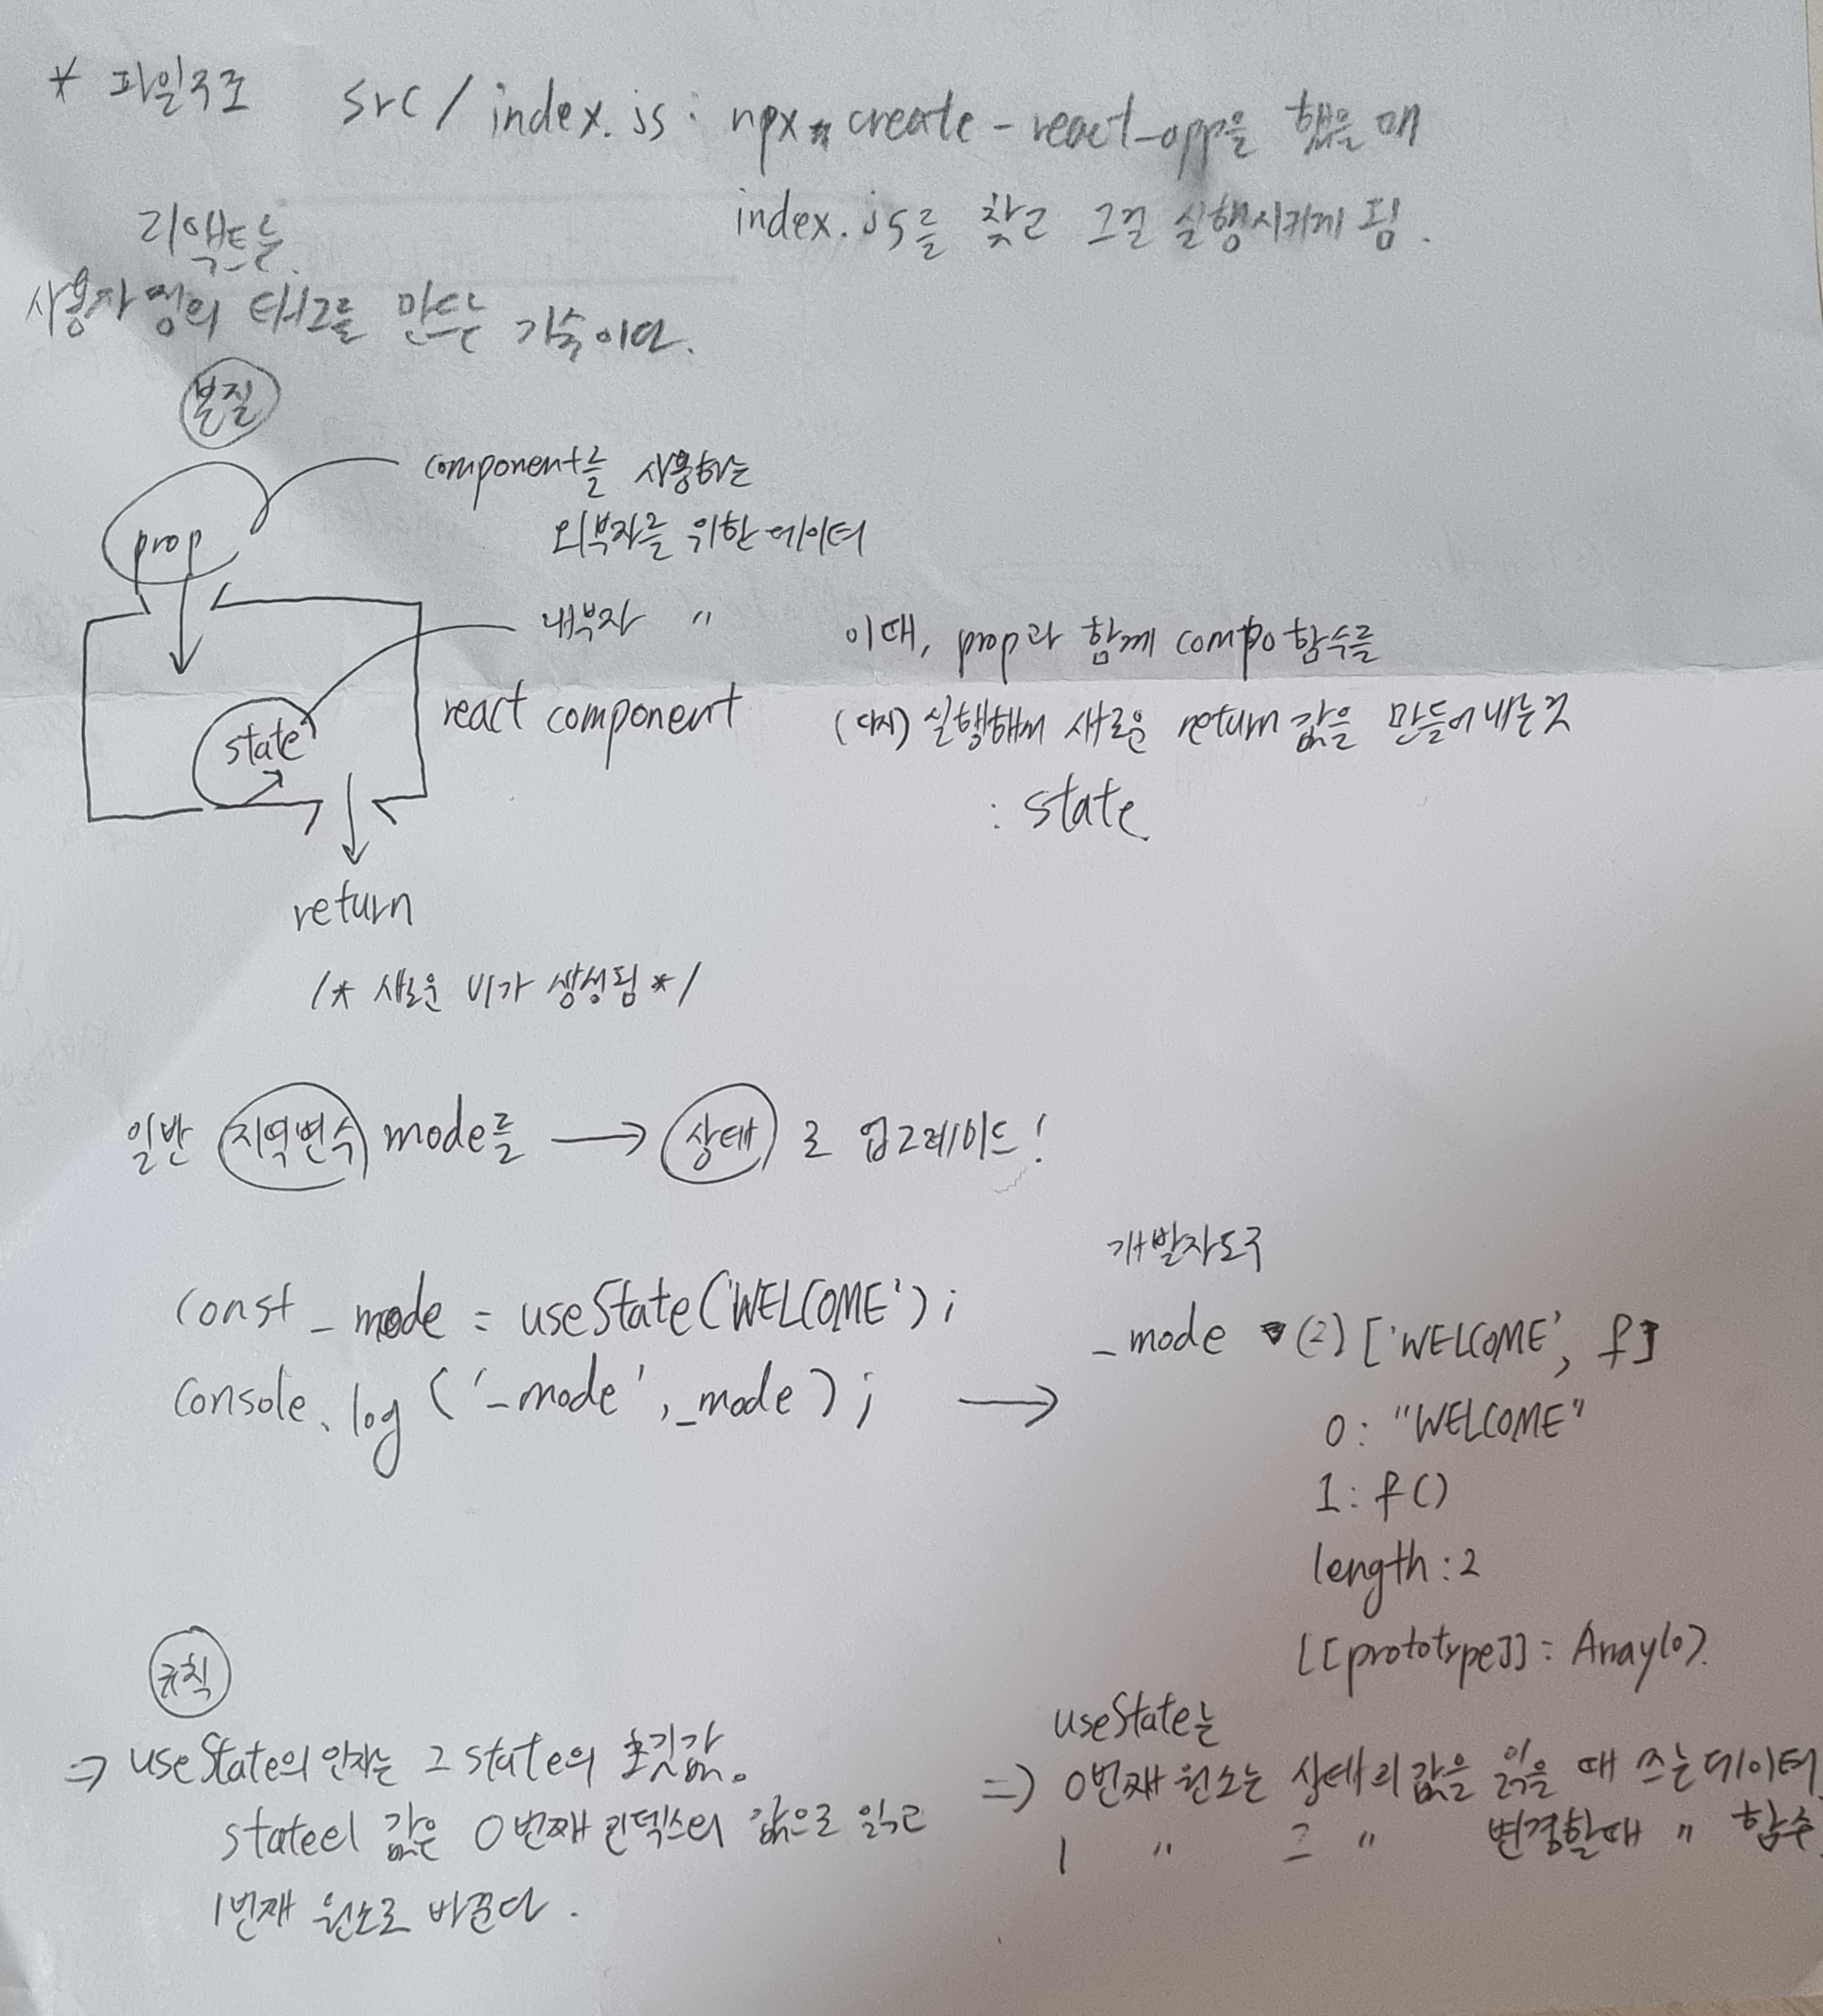 * 파일구조 src/index.js : npx create-react-app을 했을 때
index.js를 찾고 그걸 실행시키게 됨.
리액트는
사용자 정의 태그를 만드는 기술이다.
본질
component를 사용하는
외부자를 위한 데이터
prop
내부자 〃
이때, prop과 함께 compo 함수를
(다시) 실행해서 새로운 return 값을 만들어 내는 것
: state
react component
state
return
/* 새로운 UI가 생성됨 */
일반 지역변수 mode를 → 상태 로 업그레이드!
const _mode = useState('WELCOME');
console.log('_mode', _mode); →
개발자도구
_mode ▼ (2) ['WELCOME', f]
0: "WELCOME"
1: f()
length: 2
[[prototype]]: Array(0)
규칙
⇒ useState의 인자는 그 state의 초깃값.
state의 값은 0번째 인덱스의 값으로 읽고
1번째 원소로 바꾼다.
useState는
⇒ 0번째 원소는 상태의 값을 읽을 때 쓰는 데이터
1 〃 그 〃 변경할 때 〃 함수.